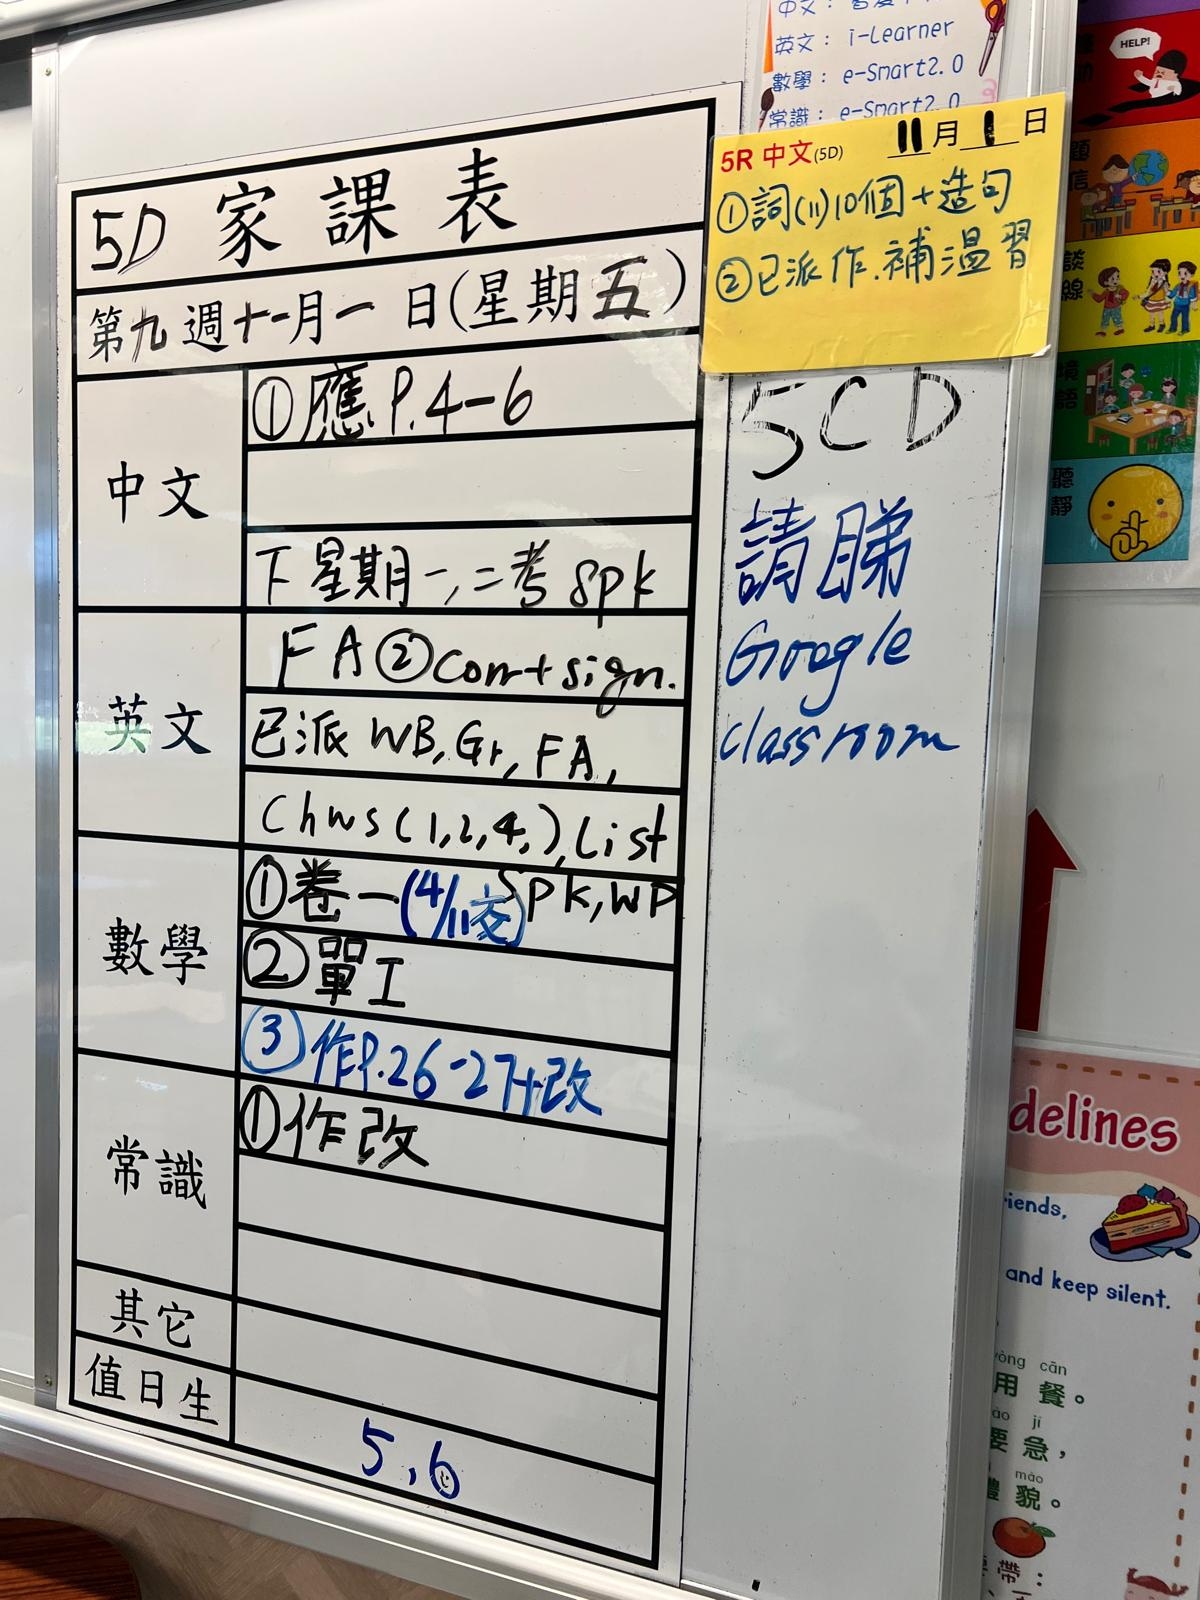 5D 家課表
第九週十一月一日(星期五)
中文
①應 P.4-6
下星期一,二考 spk
英文
FA②corr+sign.
已派 WB, Gr, FA,
Chws (1,2,4,), List
SPK, WP
數學
①卷一(4/11交)
②單工
③作P.26-27+改
常識
①作改
其它
值日生
5,6
中文:
英文: i-Learner
數學: e-Smart2.0
常識: e-Smart2.0
5R 中文(5D) 11月1日
①詞(11)10個+造句
②已派作.補溫習
5CD
請睇
Google
classroom
HELP!
delines
iends,
and keep silent.
yòng cān
用餐。
jí
要急,
mào
禮貌。
帶: